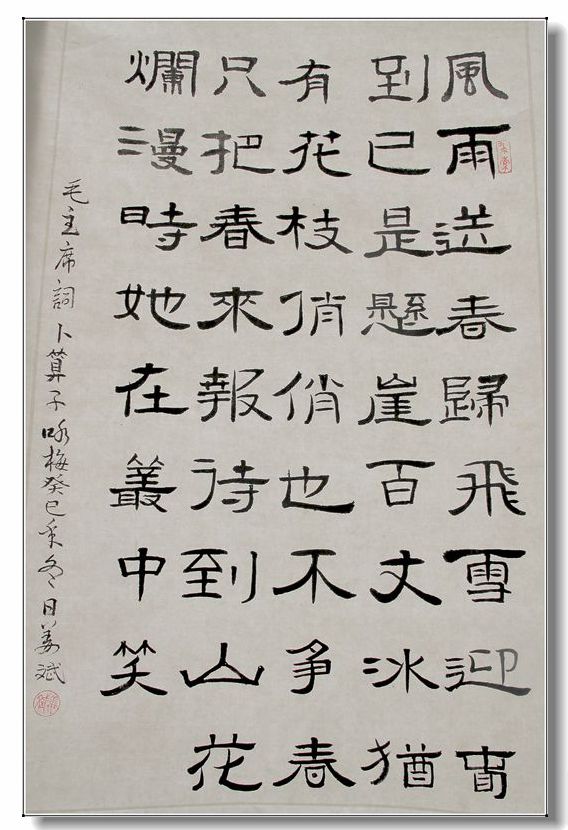 風雨送春歸飛雪迎旾
到已是懸崖百丈冰猶
有花枝俏俏也不爭春
只把春來報待到山花
爛漫時她在叢中笑
毛主席詞卜算子咏梅癸巳年冬日姜斌